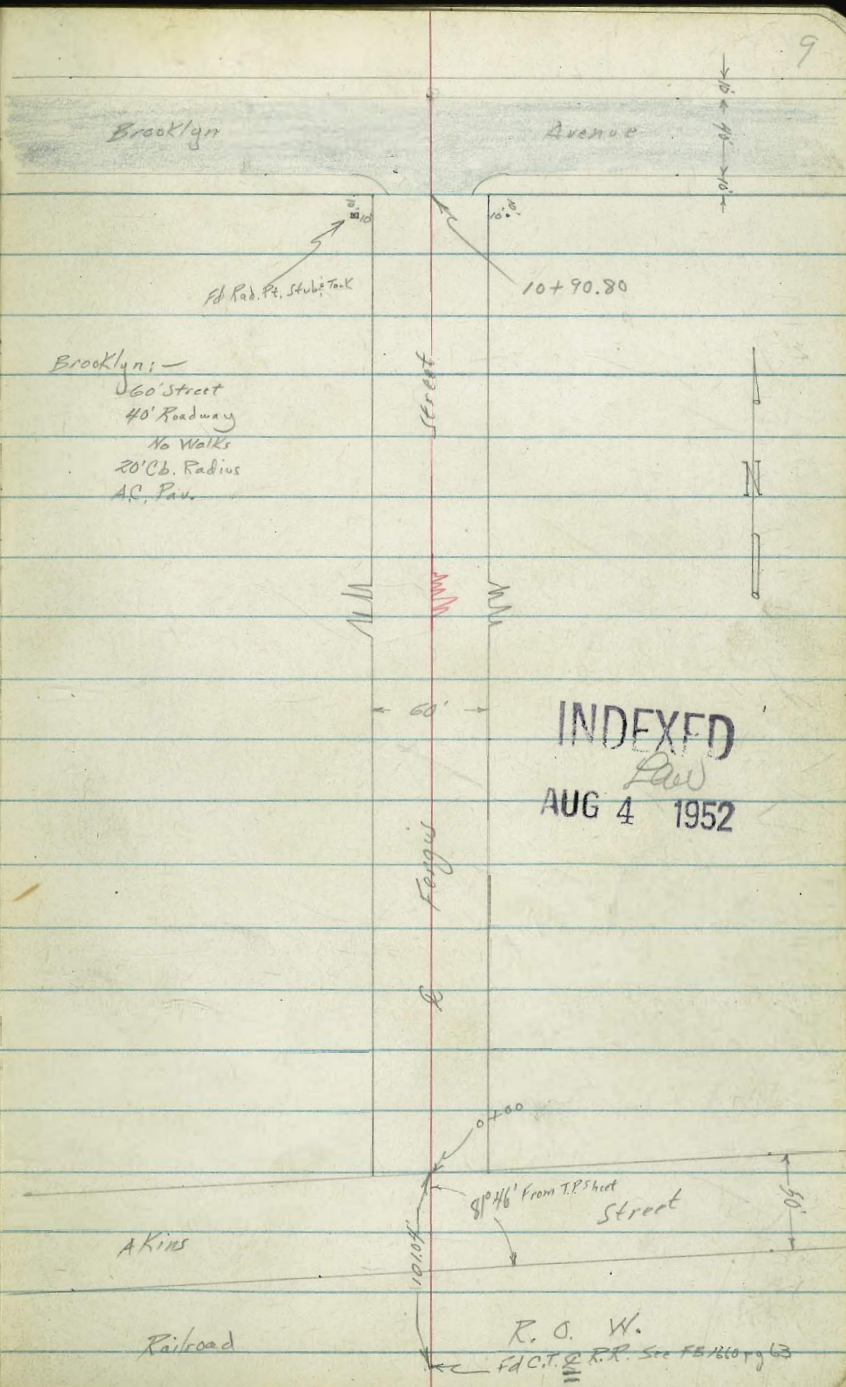 9
10' 40' 10'
Brooklyn Avenue
10' 10'
10' 10'
Fd Rad. Pt. Stub & Tack
10+90.80
Brooklyn:-
60' Street
40' Roadway
No Walks
20' Cb. Radius
A.C. Pav.
Street
N
60'
INDEXED
Law
AUG 4 1952
Fergus
℄
0+00
81°46' From T.P. Sheet
Street
50'
Akins
101.04'
Railroad R. O. W.
Fd C.T. ℄ R.R. See FB 1660 pg 63